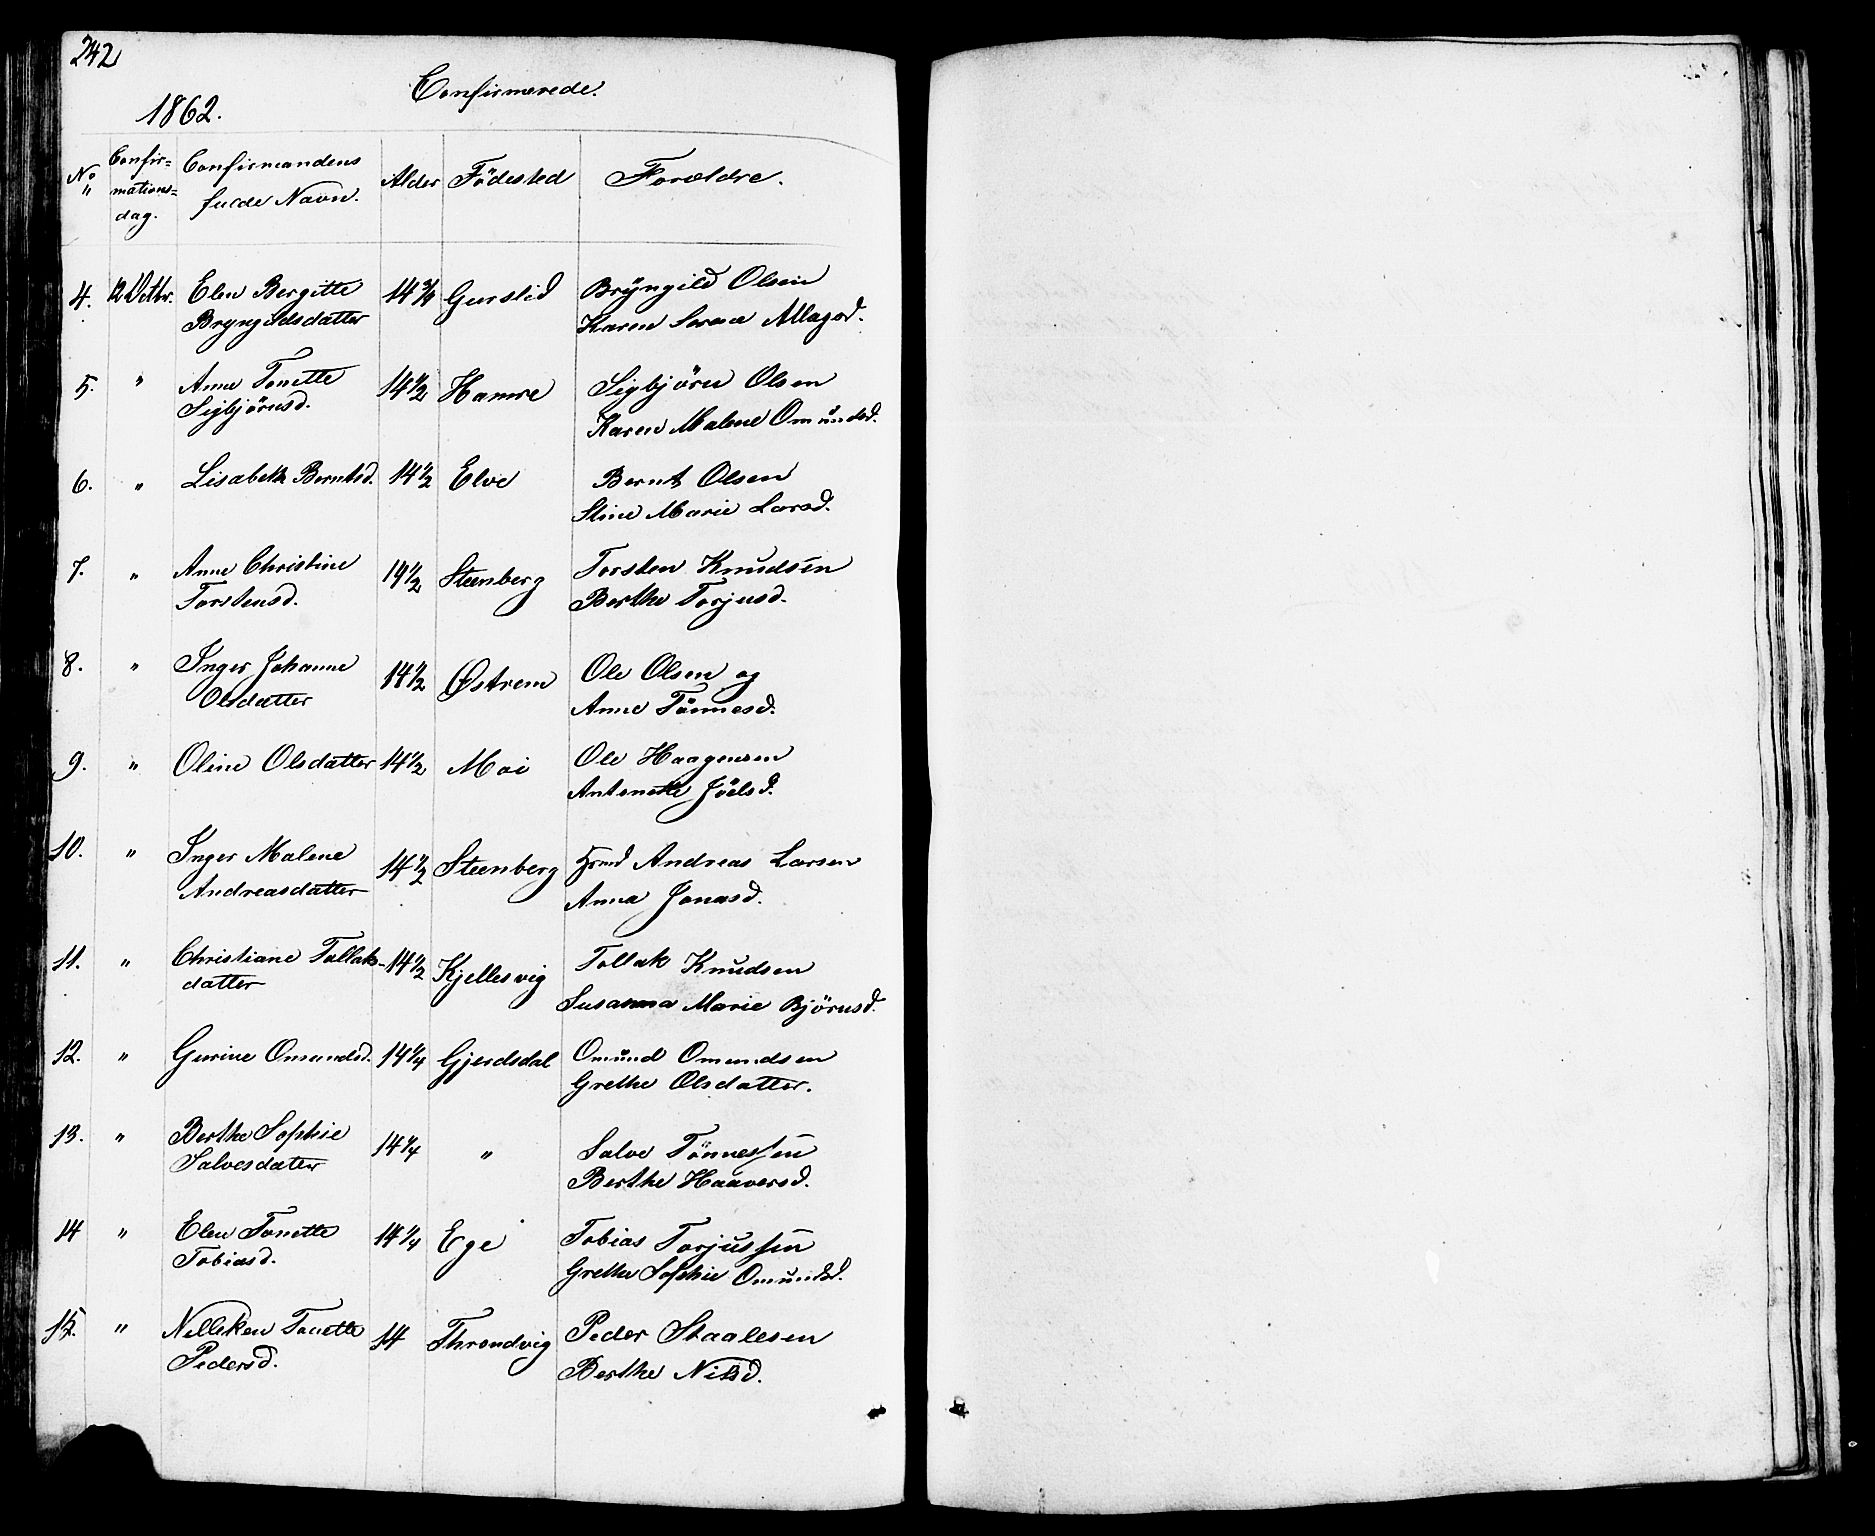 242
Confirmerede.
1862.
No
Confirmationsdag.
Confirmandens fulde Navn.
Alder
Födested
Forældre.
4. 12 Octbr. Elen Bergitte 14 3/4 Gurslid Bryngild Olsen
Bryngildsdatter Karen Serene Allagsd.
5. " Anne Tonette 14 1/2 Hamre Sigbjörn Olsen
Sigbjörnsd. Karen Malene Omundsd.
6. " Lisabeth Berntsd. 14 1/2 Elve Bernt Olsen
Stine Marie Larsd.
7. " Anne Christine 14 1/2 Steenberg Torsten Knudsen
Torstensd. Berthe Torjusd.
8. " Inger Johanne 14 1/2 Østrem Ole Olsen og
Olsdatter Anne Tönnesd.
9. " Oline Olsdatter 14 1/2 Moi Ole Haagensen
Antonette Jöelsd.
10. " Inger Malene 14 1/2 Steenberg Andreas Larsen
Andreasdatter Anna Jonasd.
11. " Christiane Tallaks- 14 1/2 Kjellesvig Tollak Knudsen
datter Susanna Marie Björnsd.
12. " Gurine Omundsd. 14 1/4 Gjerdsdal Omund Omundsen
Grethe Olsdatter.
13. " Berthe Sophie 14 1/4 " Salve Tönnessen
Salvesdatter Berthe Haaversd.
14 " Elen Tonette 14 1/4 Ege Tobias Torjussen
Tobiasd. Grethe Sophie Omundsd.
15. " Nilleken Tonette 14 Throndvig Peder Staalesen
Pedersd. Berthe Nilsd.